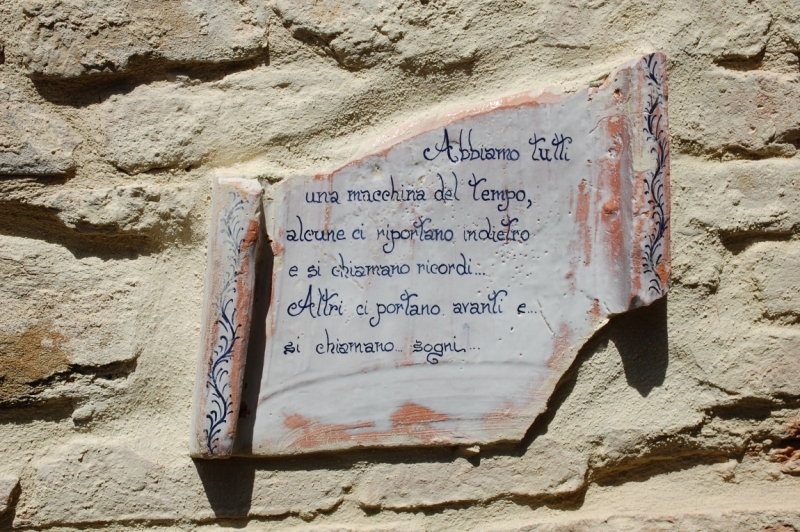 Abbiamo tutti
una macchina del tempo,
alcune ci riportano indietro
e si chiamano ricordi...
Altri ci portano avanti e...
si chiamano... sogni...